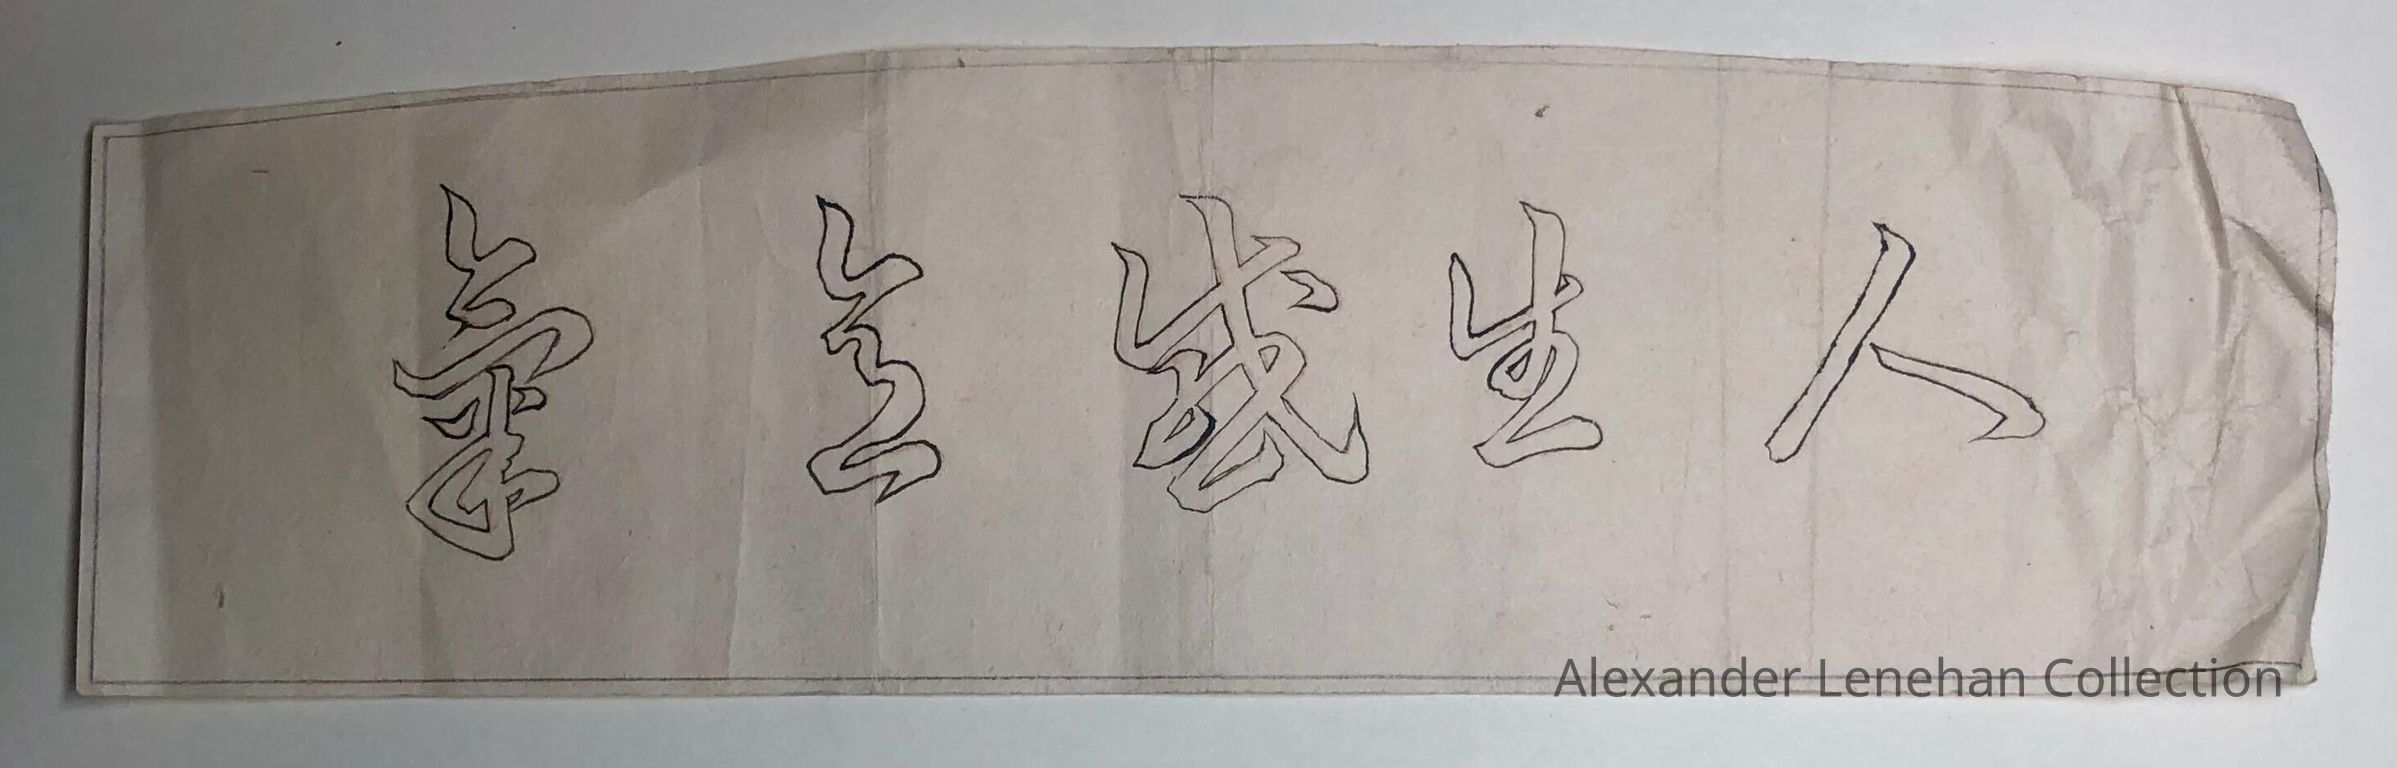 人生感意氣
Alexander Lenehan Collection